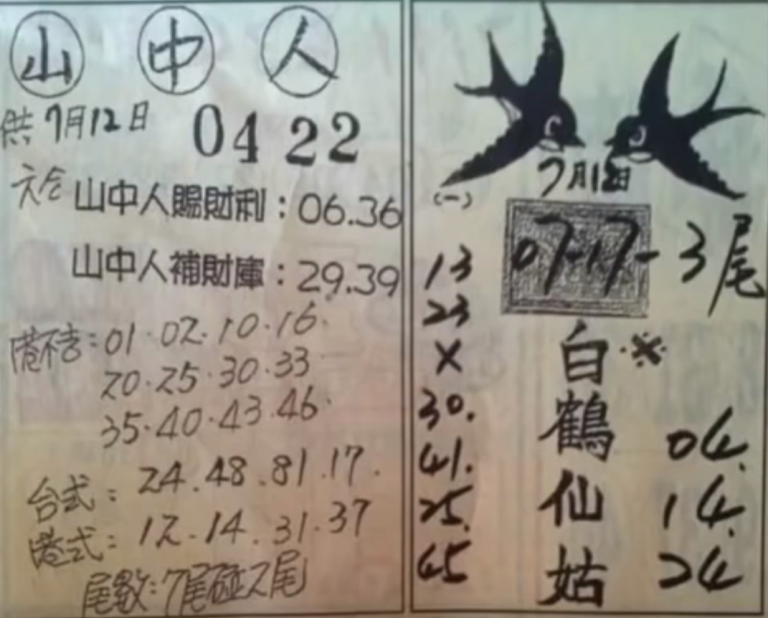 山中人
供7月12日 04 22
六合 山中人賜財利：06.36
山中人補財庫：29.39
港不去：01·02·10·16·
20·25·30·33
35·40·43·46·
台式：24.48.81.17.
港式：12.14.31.37
尾數：7尾碰2尾
7月12日
(一)
07-17-3尾
13
23
X
30.
41.
25.
45
白鶴仙姑
04.
14.
24